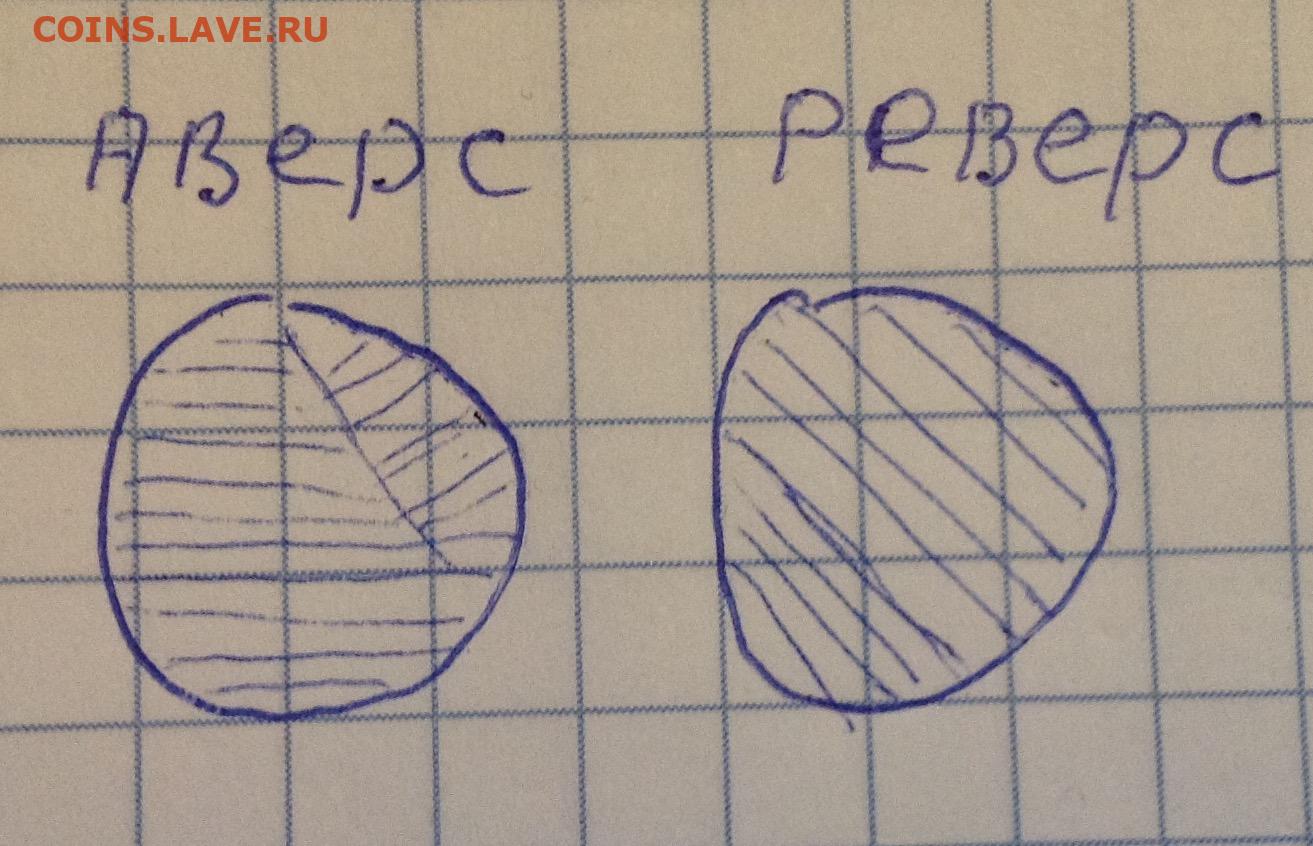 COINS.LAVE.RU
АВерс РЕВерс